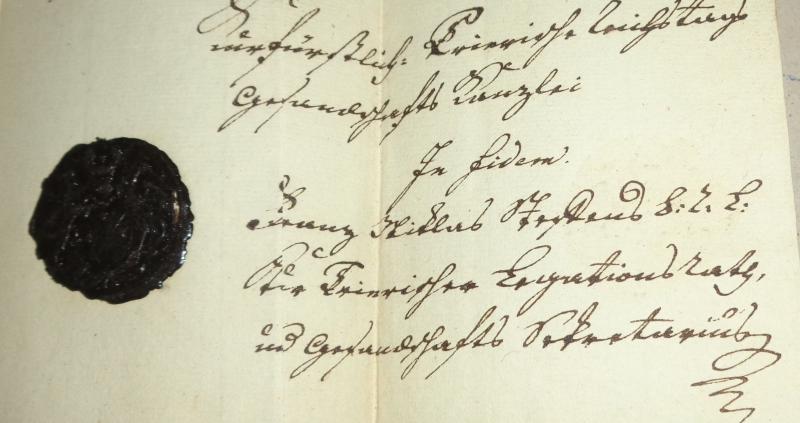 Kurfürstlich: Trierische Reichstags
Gesandschafts Kanzlei
In fidem.
Franz Niklas
Kur Trierischer Legations Rath,
und Gesandschafts Sekretarius